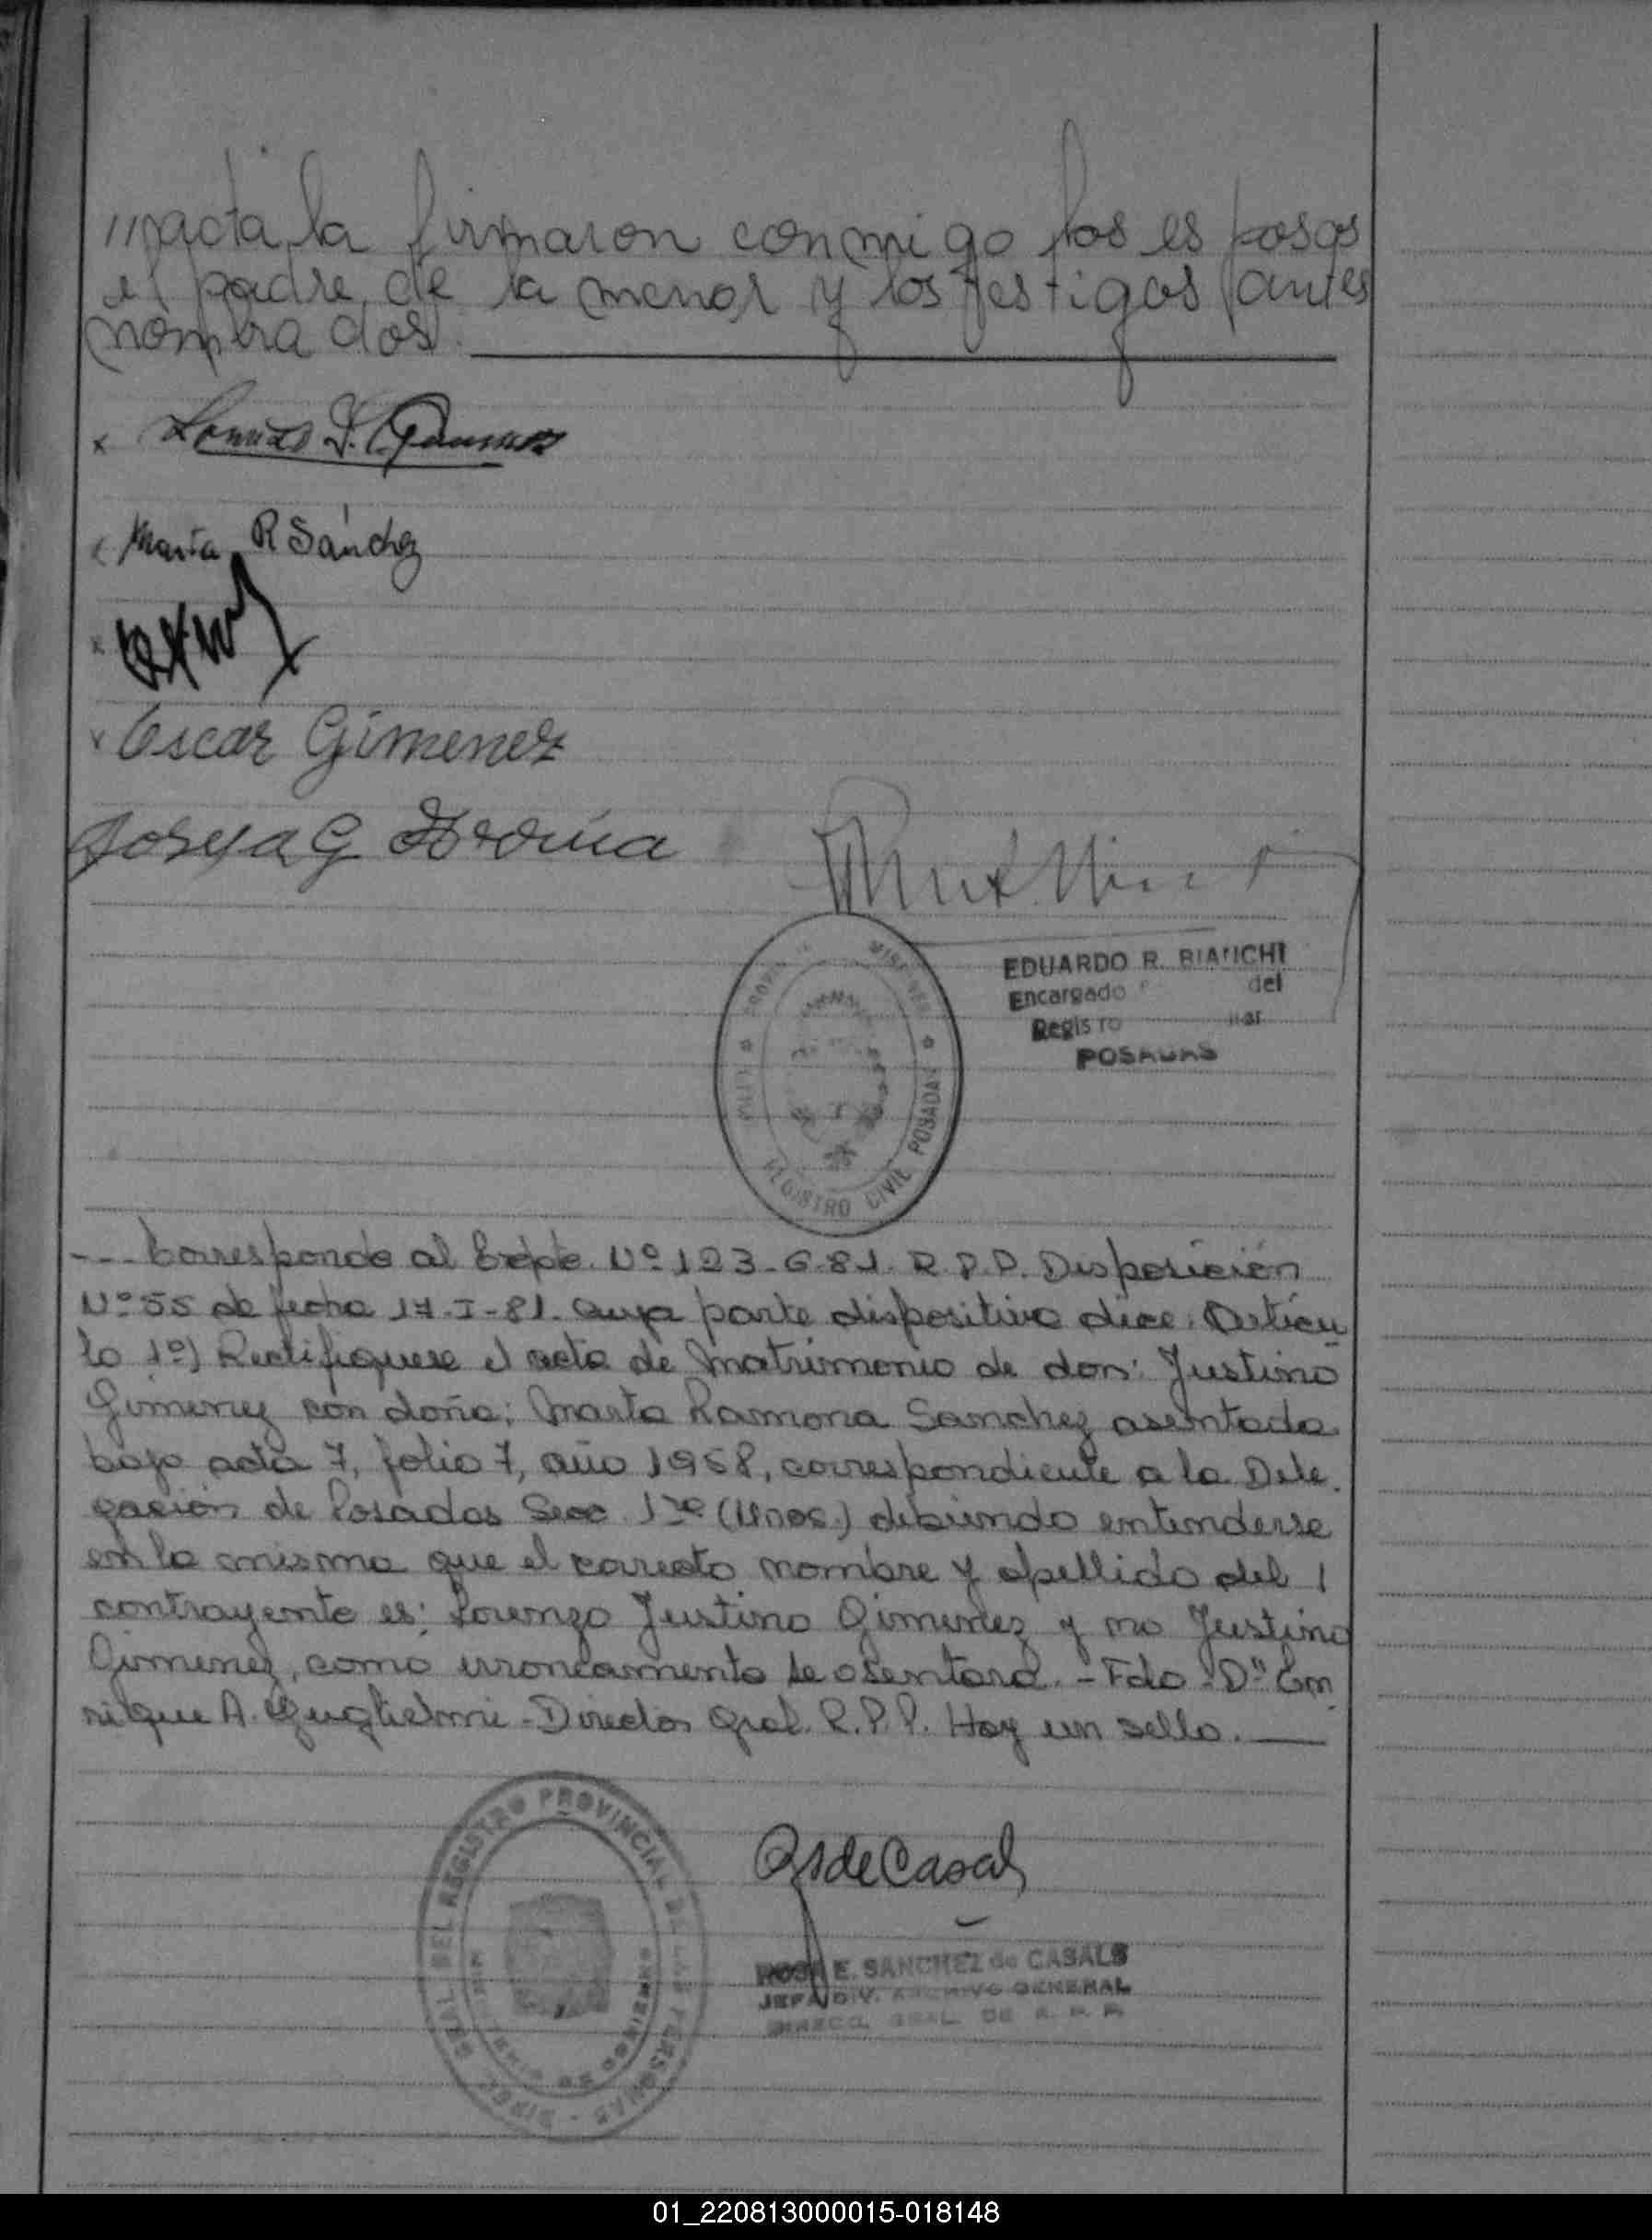 ///acta, la firmaron conmigo los esposos
el padre de la menor y los testigos antes
nombrados.
x Lorenzo J. Gimenez
x Marta R Sánchez
x
x Oscar Gimenez
Josefa G
EDUARDO R. BIANCHI
Encargado del
Registro
POSADAS
MISIONES
REGISTRO CIVIL POSADAS
--- Corresponde al Expte. Nº 123-G-81. R.P.P. Disposición
Nº 55 de fecha 17-I-81. Cuya parte dispositiva dice: Artícu
lo 1º) Rectifiquese el acta de Matrimonio de don: Justino
Gimenez con doña: Marta Ramona Sanchez asentada
bajo acta 7, folio 7, año 1968, correspondiente a la Dele
gación de Posadas Secc. 1ra debiendo entenderse
en la misma que el correcto nombre y apellido del
contrayente es: Lorenzo Justino Gimenez y no Justino
Gimenez, como erroneamente se asentara. - Fdo: Dn En
rique A. Guglielmi - Director Gral. R.P.P. Hay un sello.
RSdeCasals
DEL REGISTRO PROVINCIAL DE LAS PERSONAS
ROSA E. SANCHEZ de CASALS
JEFA DIV. ARCHIVO GENERAL
DIRECC. GRAL. DE R. P. P.
01_220813000015-018148